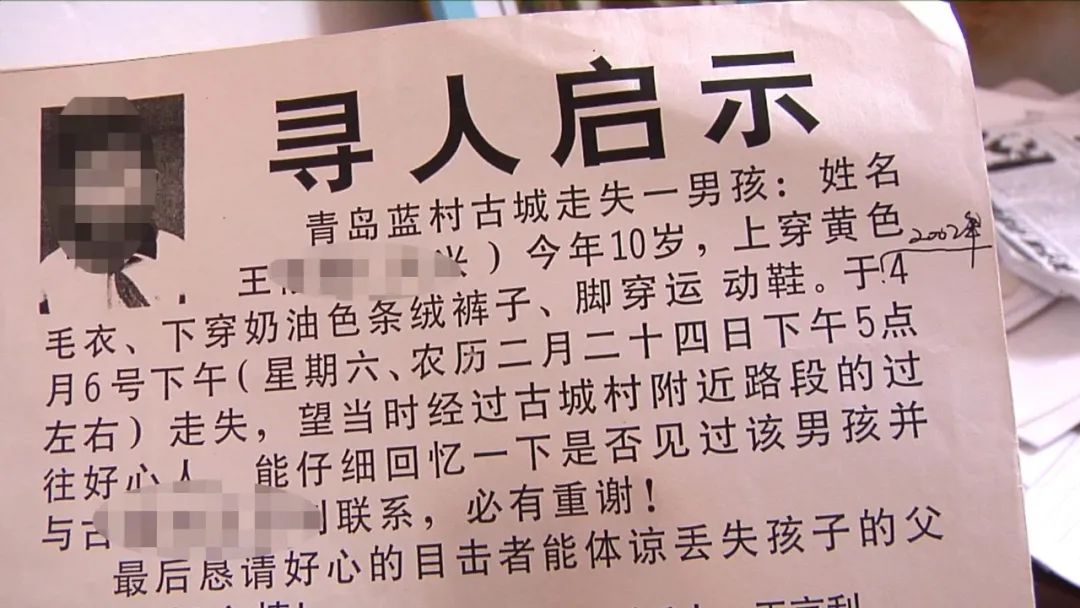 寻人启示
青岛蓝村古城走失一男孩：姓名
王 ）今年10岁，上穿黄色
2002年
毛衣、下穿奶油色条绒裤子、脚穿运 动鞋。于4
月6号下午(星期六、农历二月二十四日下午5点
左右）走失，望当时经过古城村附近路段的过
往好心人 能仔细回忆一下是否见过该男孩并
与古 联系，必有重谢！
最后恳请好心的目击者能体谅丢失孩子的父